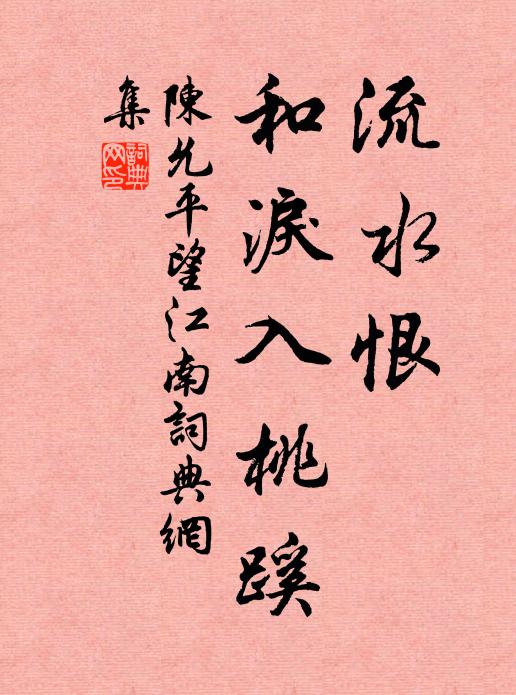 流水恨
和淚入桃蹊
陳允平望江南詞典網
集
詞典網印